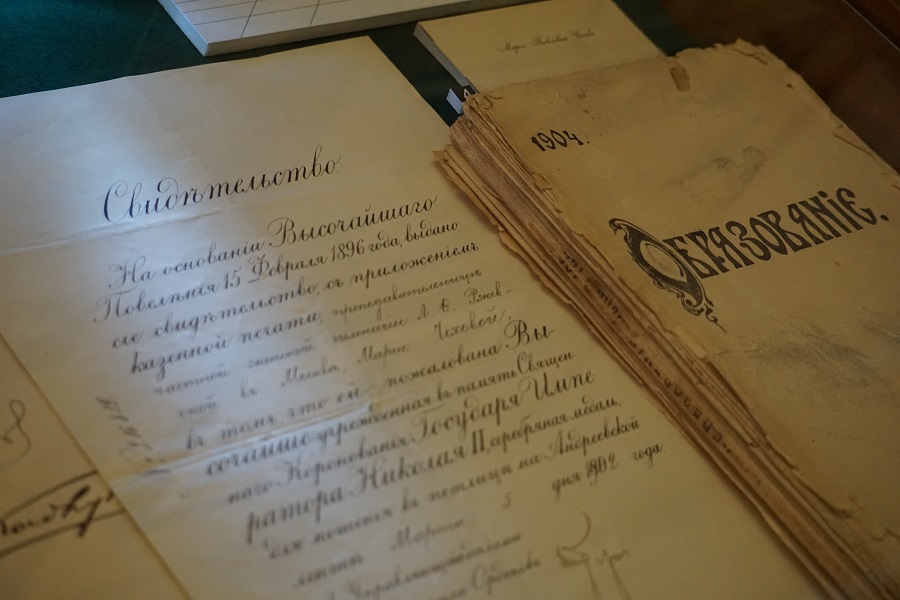 Свидѣтельство.
На основаніи Высочайшаго
Повелѣнія 15 Февраля 1896 года, выдано
сіе свидѣтельство, съ приложеніемъ
казенной печати, преподавательницѣ
частной женской гимназіи Л. Ѳ. Ржев-
ской въ Москвѣ, Маріи Чеховой,
въ томъ, что ей пожалована Вы-
сочайше учрежденная въ память Священ
наго Коронованія Государя Импе
ратора Николая II, серебряная медаль,
для ношенія въ петлицѣ на Андреевской
лентѣ Марта 5 дня 1902 года
Управляющаго
Марія Павловна Чехова
1904.
Образованіе.